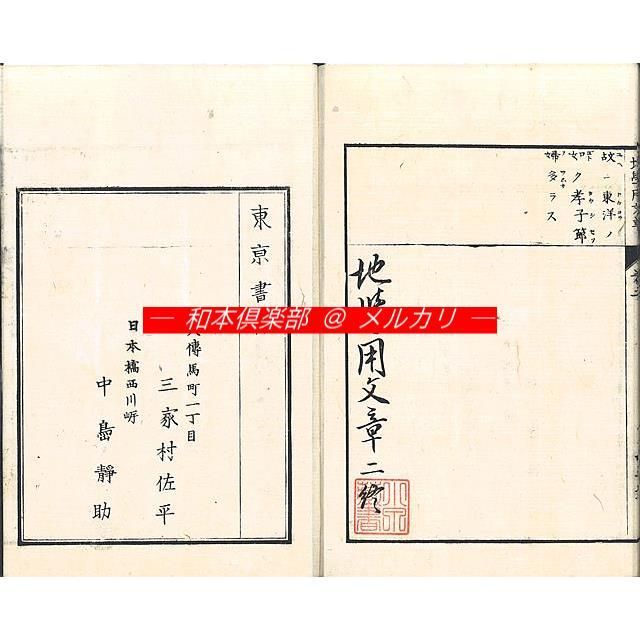 故ニ東洋ノ
如ク孝子節
婦多ラス
用文章二終
— 和本倶楽部 @ メルカリ —
東亰書
傳馬町一丁目
三家村佐平
日本橋西川岍
中島靜助